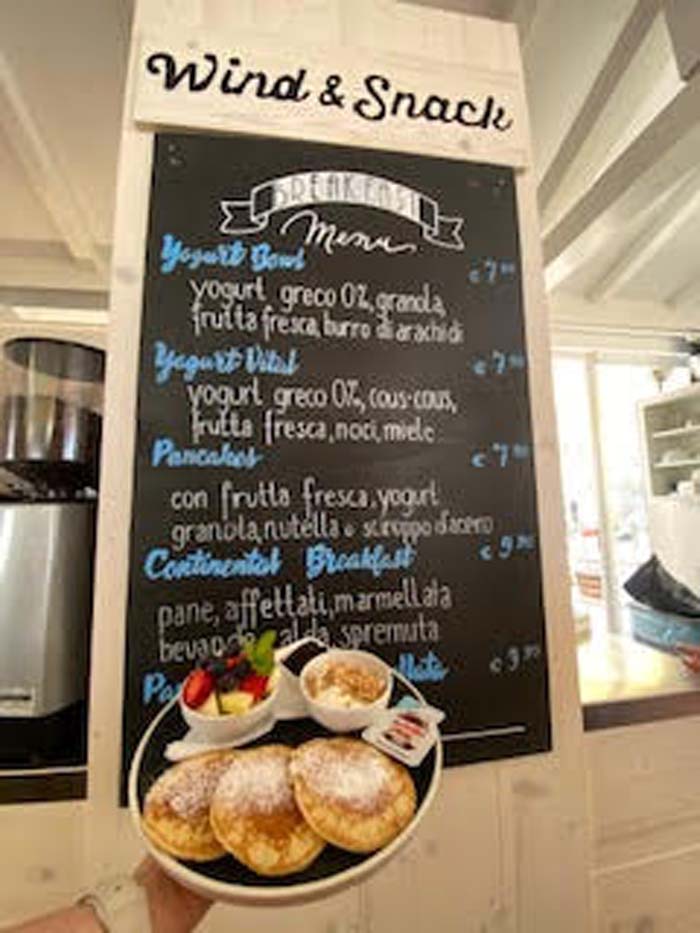 Wind & Snack
BREAKFAST
Menu
Yogurt Bowl
yogurt greco 0%, granola,
frutta fresca, burro di arachidi
Yogurt Vital € 7
yogurt greco 0%, cous-cous,
frutta fresca, noci, miele
Pancakes € 7
con frutta fresca, yogurt
granola, nutella o sciroppo d'acero
Continental Breakfast € 9
pane, affettati, marmellata
spremuta
€ 9